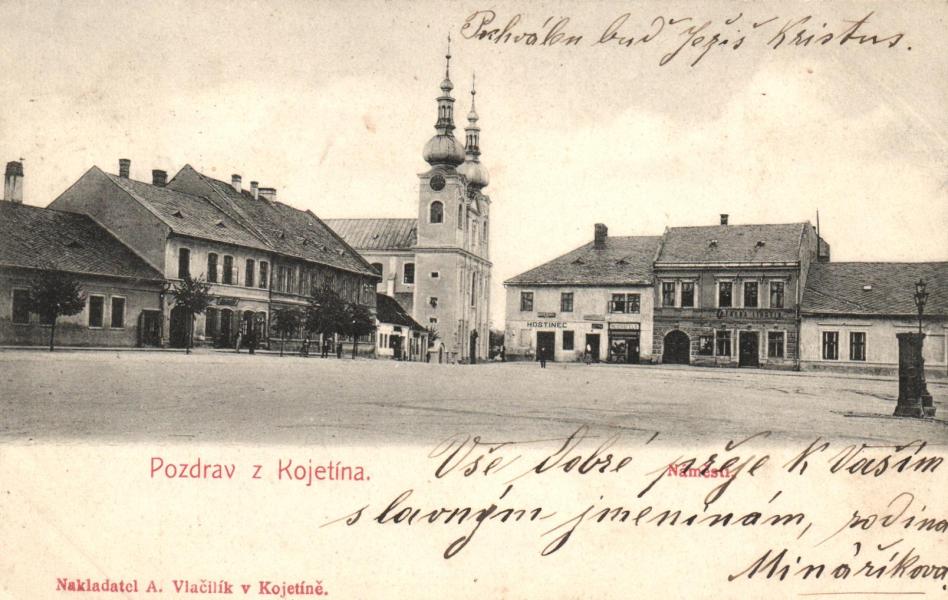 Pochválen buď Ježiš Kristus.
HOSTINEC
Pozdrav z Kojetína.
Náměstí.
Vše Dobré přeje K Vaším
slavným jmeninám, rodina
Minaříkova
Nakladatel A. Vlačilík v Kojetíně.